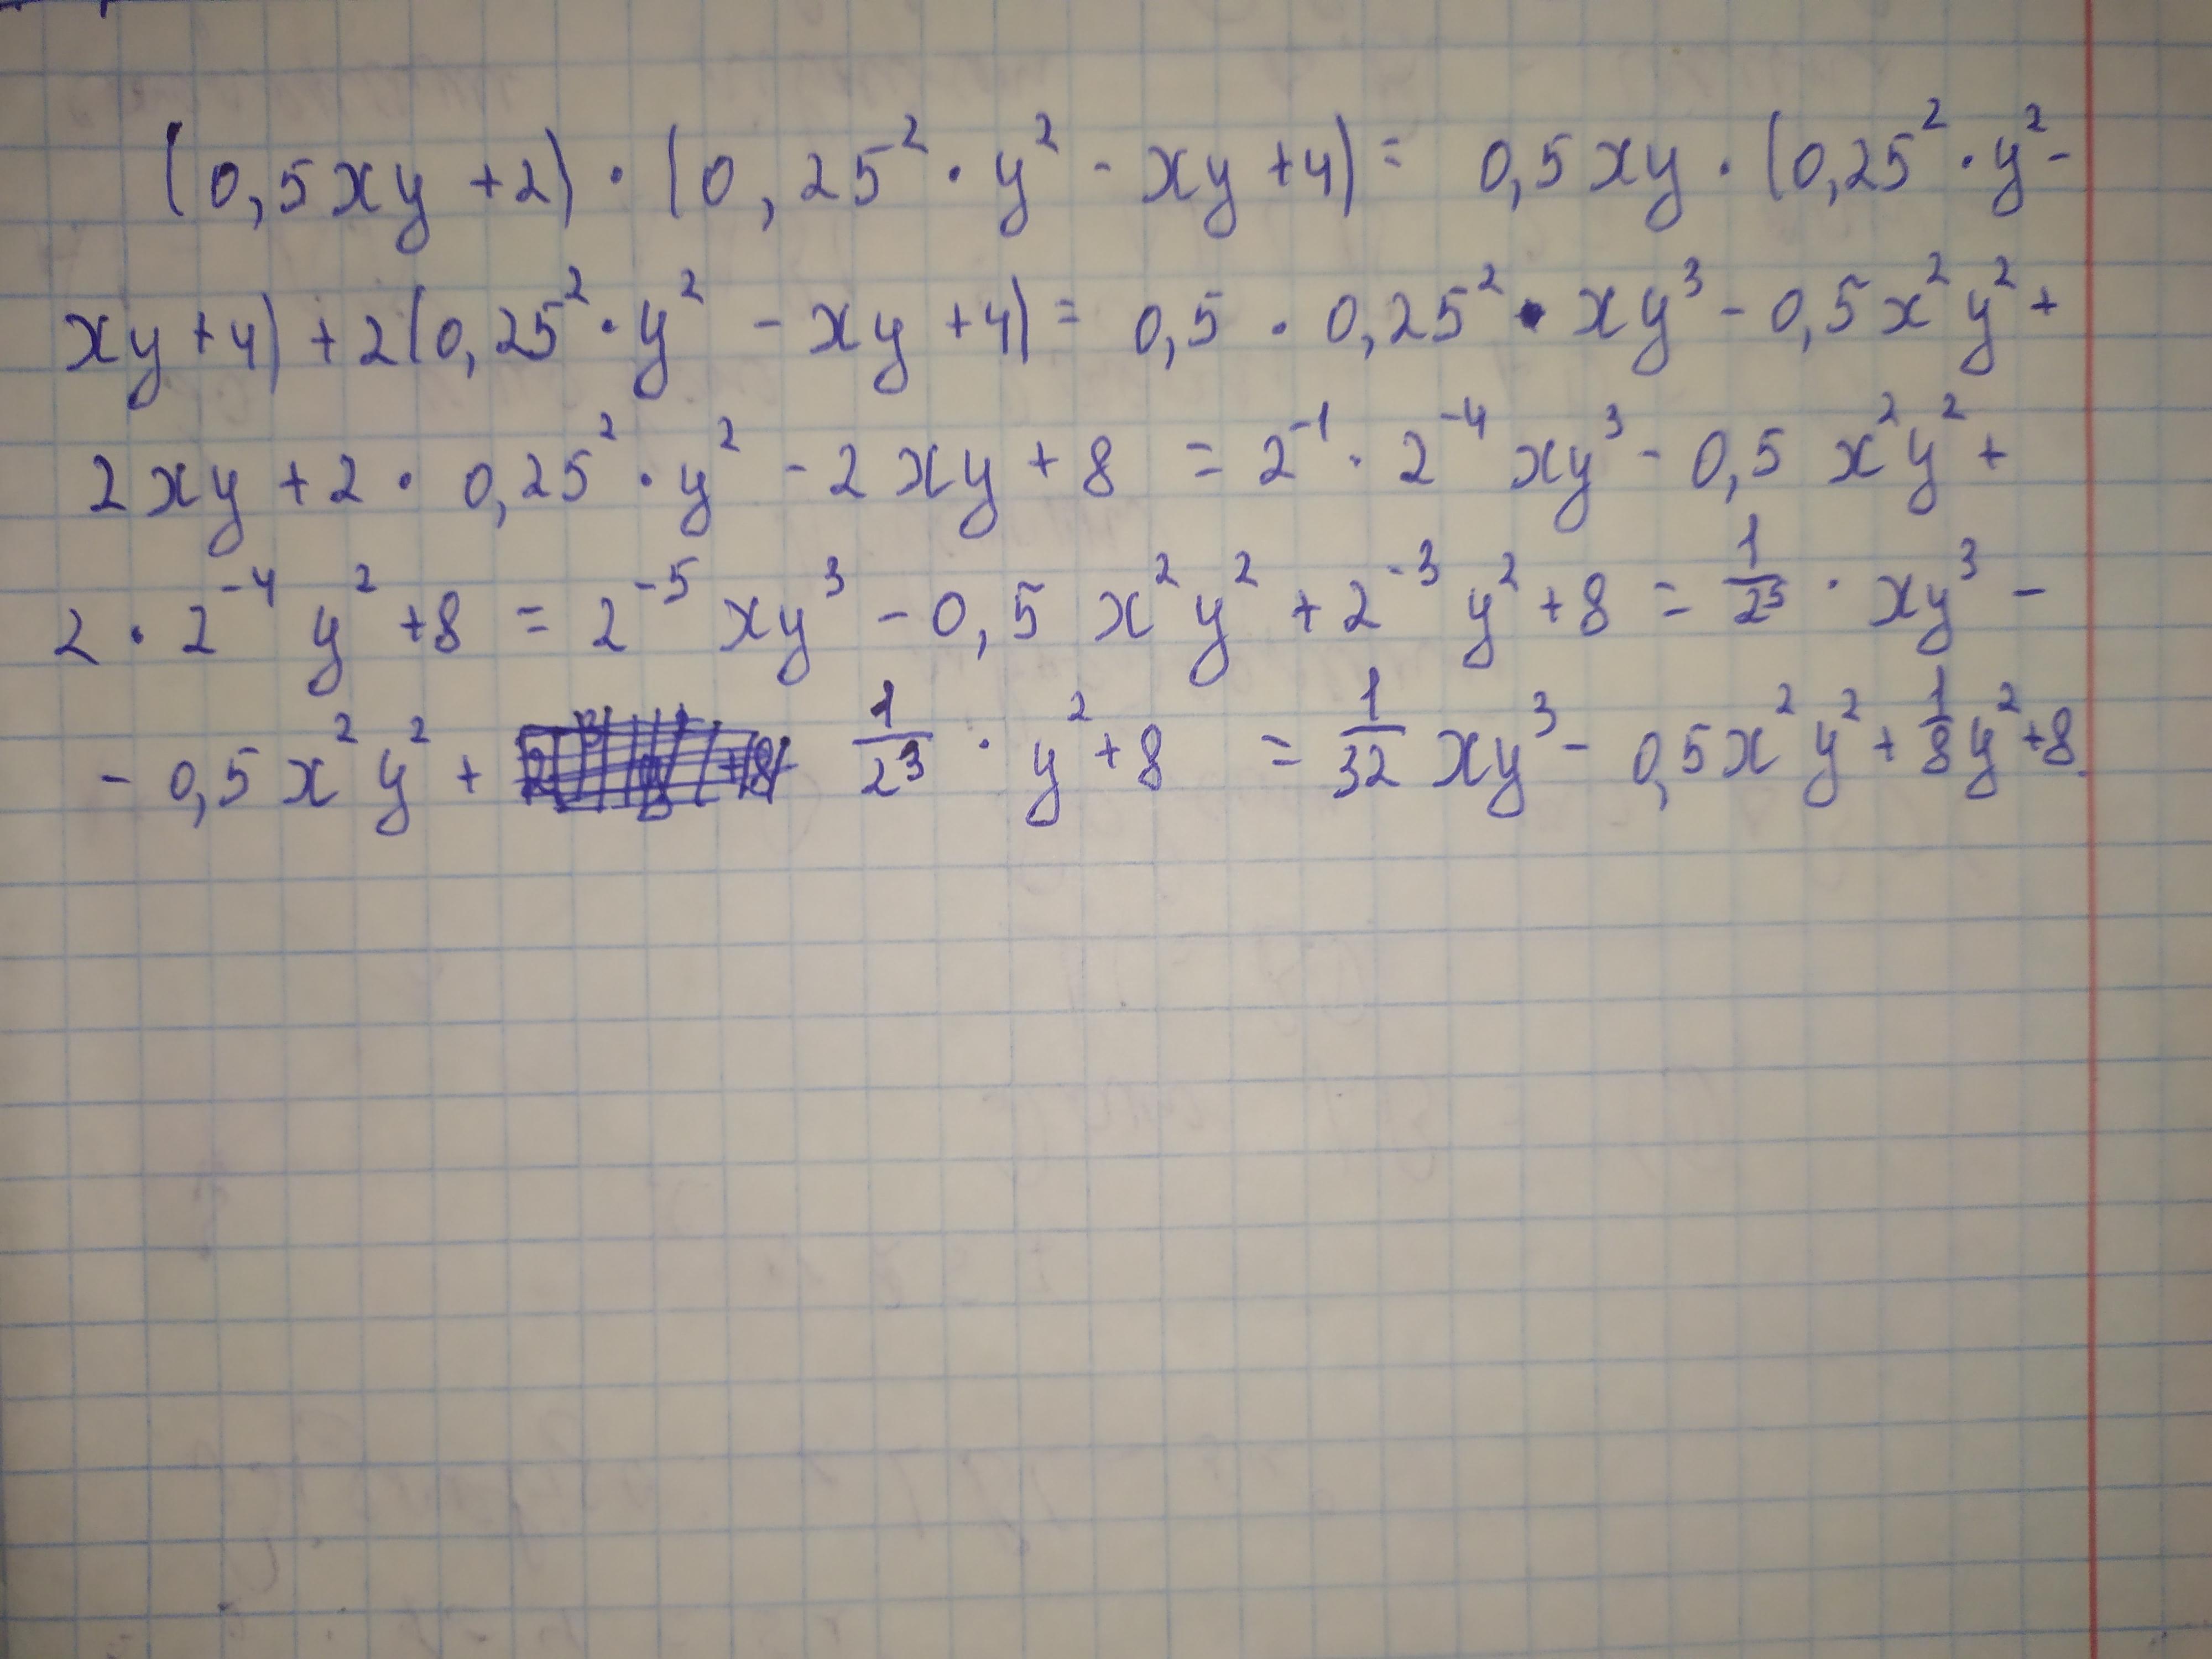 (0,5xy+2)·(0,25²·y²-xy+4)= 0,5xy·(0,25²·y²-
xy+4)+2(0,25²·y²-xy+4)= 0,5·0,25²·xy³-0,5x²y²+
2xy+2·0,25²·y²-2xy+8 = 2⁻¹·2⁻⁴xy³-0,5x²y²+
2·2⁻⁴y²+8 = 2⁻⁵xy³-0,5x²y²+2⁻³y²+8 = 1/2⁵·xy³-
-0,5x²y²+ 1/2³·y²+8 = 1/32xy³-0,5x²y²+1/8y²+8.